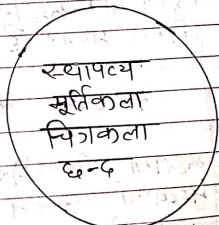 स्थापत्य
मूर्तिकला
चित्रकला
छन्द